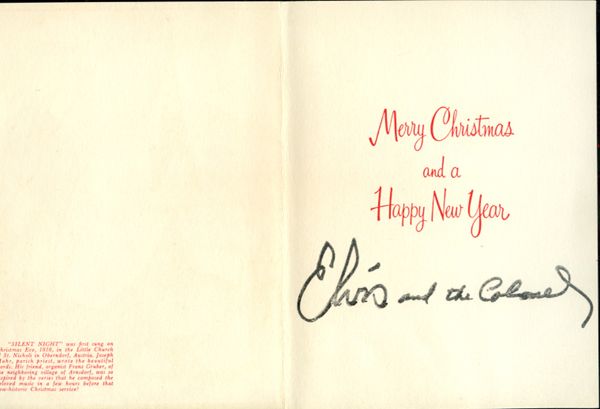 "SILENT NIGHT" was first sung on
Christmas Eve, 1818, in the Little Church
St. Nichols in Oberndorf, Austria. Joseph
Mohr, parish priest, wrote the beautiful
words. His friend, organist Franz Gruber, of
neighboring village of Arnsdorf, was so
inspired by the verses that he composed the
beloved music in a few hours before that
now-historic Christmas service!
Merry Christmas
and a
Happy New Year
Elvis and the Colonel